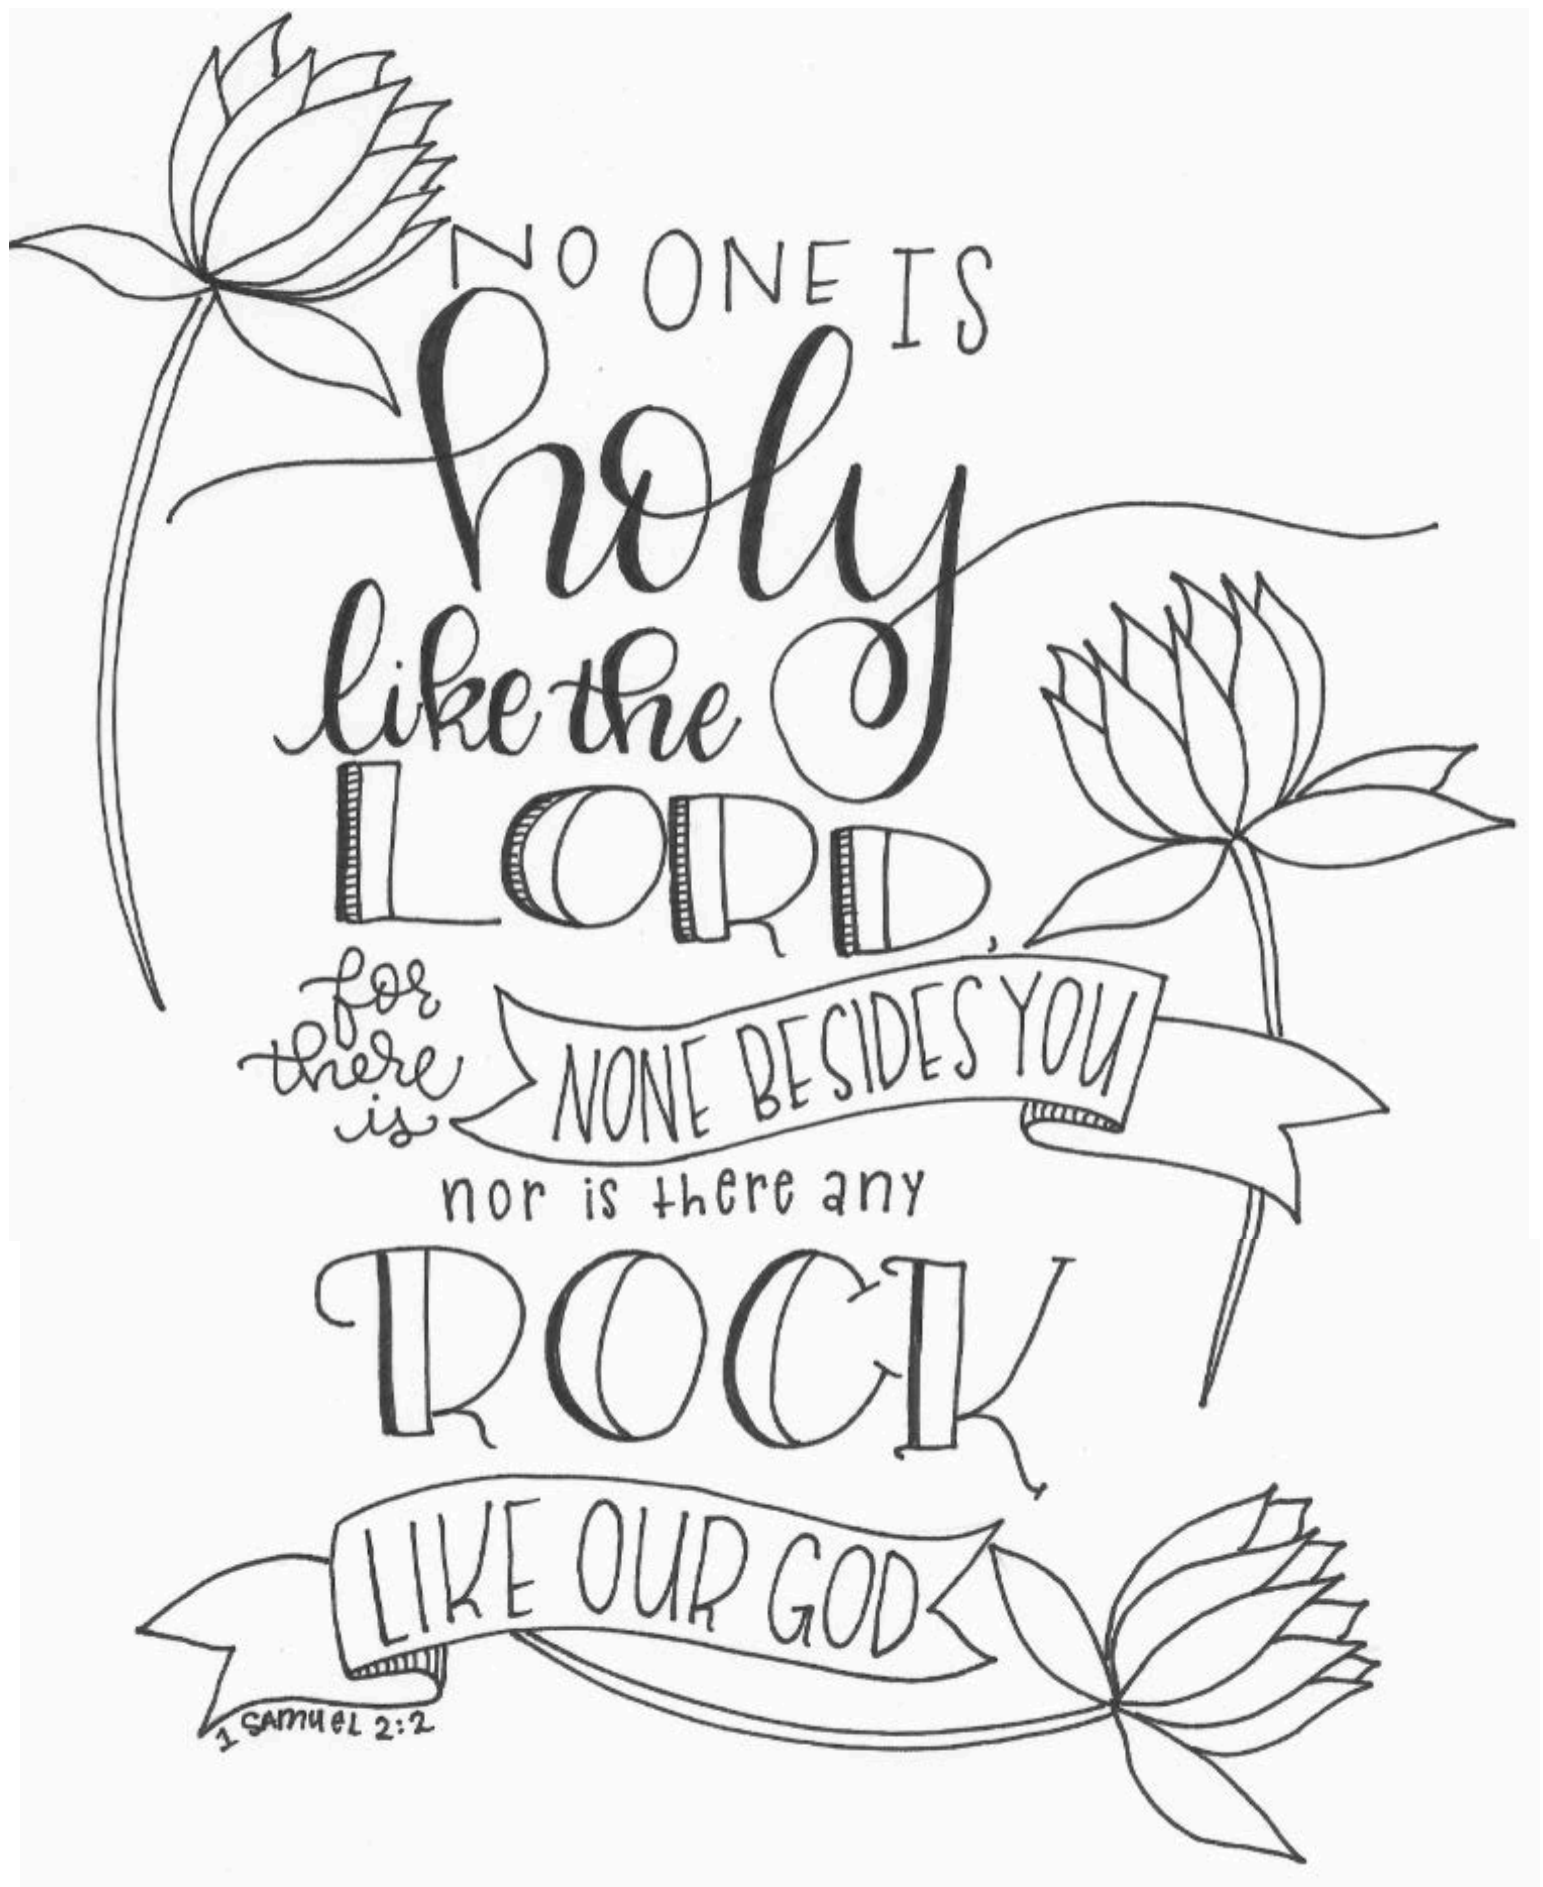 NO ONE IS
holy
like the
LORD,
for
there
is
NONE BESIDES YOU
nor is there any
ROCK
LIKE OUR GOD
1 SAMUEL 2:2